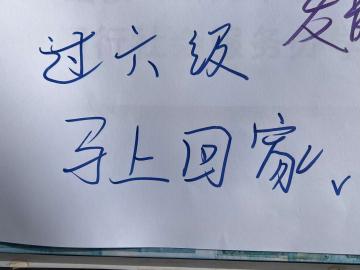 过六级
马上回家、